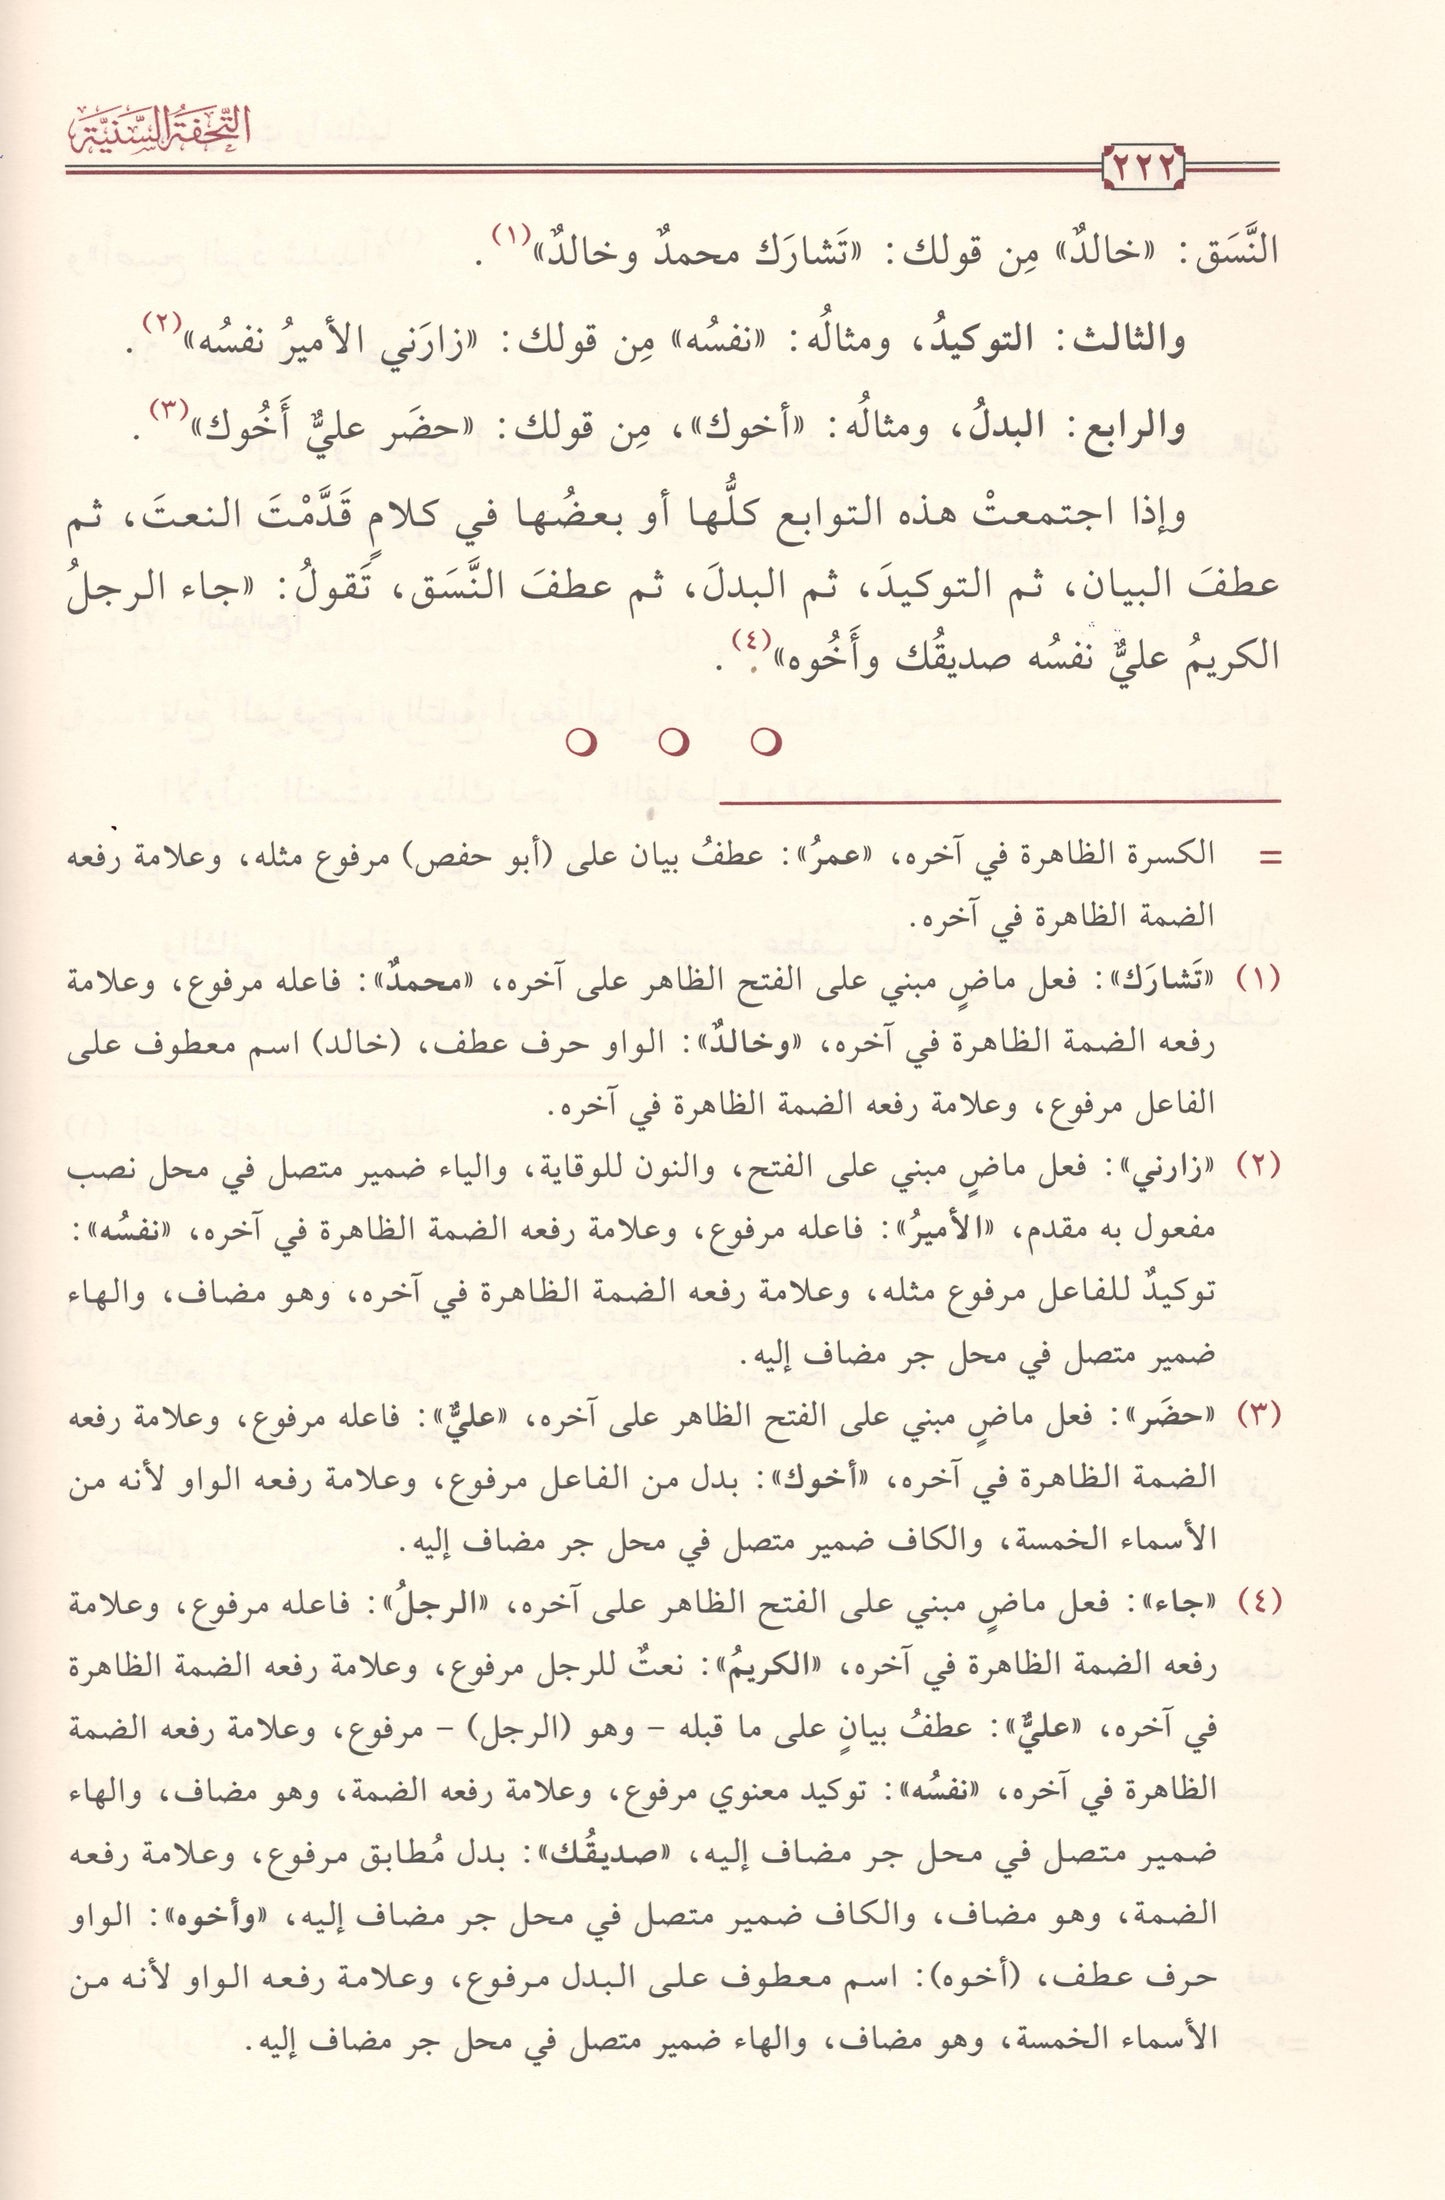 التحفة السنية
٢٢٢
النَّسَق: «خالدٌ» مِن قولك: «تَشارَك محمدٌ وخالدٌ»(١).
والثالث: التوكيدُ، ومثالُه: «نفسُه» مِن قولك: «زارَني الأميرُ نفسُه»(٢).
والرابع: البدلُ، ومثالُه: «أخوك»، مِن قولك: «حضَر عليٌّ أَخُوك»(٣).
وإذا اجتمعتْ هذه التوابع كلُّها أو بعضُها في كلامٍ قَدَّمْتَ النعتَ، ثم
عطفَ البيان، ثم التوكيدَ، ثم البدلَ، ثم عطفَ النَّسَق، تَقولُ: «جاء الرجلُ
الكريمُ عليٌّ نفسُه صديقُك وأَخُوه»(٤).
= الكسرة الظاهرة في آخره، «عمرُ»: عطفُ بيان على (أبو حفص) مرفوع مثله، وعلامة رفعه
الضمة الظاهرة في آخره.
(١) «تَشارَك»: فعل ماضٍ مبني على الفتح الظاهر على آخره، «محمدٌ»: فاعله مرفوع، وعلامة
رفعه الضمة الظاهرة في آخره، «وخالدٌ»: الواو حرف عطف، (خالد) اسم معطوف على
الفاعل مرفوع، وعلامة رفعه الضمة الظاهرة في آخره.
(٢) «زارني»: فعل ماضٍ مبني على الفتح، والنون للوقاية، والياء ضمير متصل في محل نصب
مفعول به مقدم، «الأميرُ»: فاعله مرفوع، وعلامة رفعه الضمة الظاهرة في آخره، «نفسُه»:
توكيدٌ للفاعل مرفوع مثله، وعلامة رفعه الضمة الظاهرة في آخره، وهو مضاف، والهاء
ضمير متصل في محل جر مضاف إليه.
(٣) «حضَر»: فعل ماضٍ مبني على الفتح الظاهر على آخره، «عليٌّ»: فاعله مرفوع، وعلامة رفعه
الضمة الظاهرة في آخره، «أخوك»: بدل من الفاعل مرفوع، وعلامة رفعه الواو لأنه من
الأسماء الخمسة، والكاف ضمير متصل في محل جر مضاف إليه.
(٤) «جاء»: فعل ماضٍ مبني على الفتح الظاهر على آخره، «الرجلُ»: فاعله مرفوع، وعلامة
رفعه الضمة الظاهرة في آخره، «الكريمُ»: نعتٌ للرجل مرفوع، وعلامة رفعه الضمة الظاهرة
في آخره، «عليٌّ»: عطفُ بيانٍ على ما قبله - وهو (الرجل) - مرفوع، وعلامة رفعه الضمة
الظاهرة في آخره، «نفسُه»: توكيد معنوي مرفوع، وعلامة رفعه الضمة، وهو مضاف، والهاء
ضمير متصل في محل جر مضاف إليه، «صديقُك»: بدل مُطابق مرفوع، وعلامة رفعه
الضمة، وهو مضاف، والكاف ضمير متصل في محل جر مضاف إليه، «وأخوه»: الواو
حرف عطف، (أخوه): اسم معطوف على البدل مرفوع، وعلامة رفعه الواو لأنه من
الأسماء الخمسة، وهو مضاف، والهاء ضمير متصل في محل جر مضاف إليه.